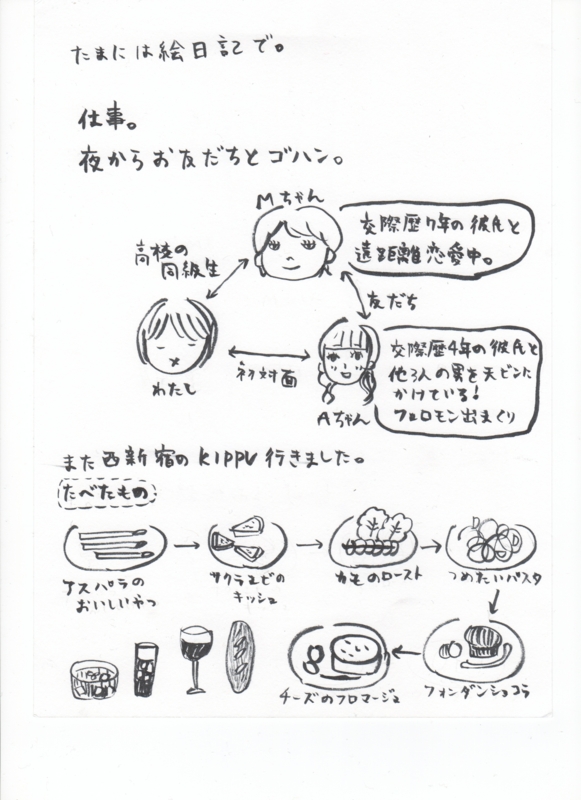 たまには絵日記で。
仕事。
夜からお友だちとゴハン。
Mちゃん
交際歴7年の彼氏と
遠距離恋愛中。
高校の
同級生
友だち
わたし
初対面
Aちゃん
交際歴4年の彼氏と
他3人の男を天ビンに
かけている!
フェロモン出まくり
また西新宿のKIPPU行きました。
たべたもの
アスパラの
おいしいやつ
サクラエビの
キッシュ
カモのロースト
つめたいパスタ
フォンダンショコラ
チーズのフロマージュ